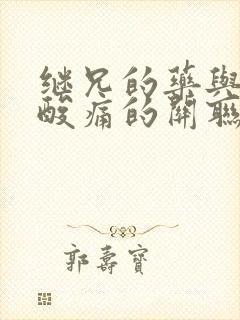 继兄的药與
酸痛的關聯
郭壽寶